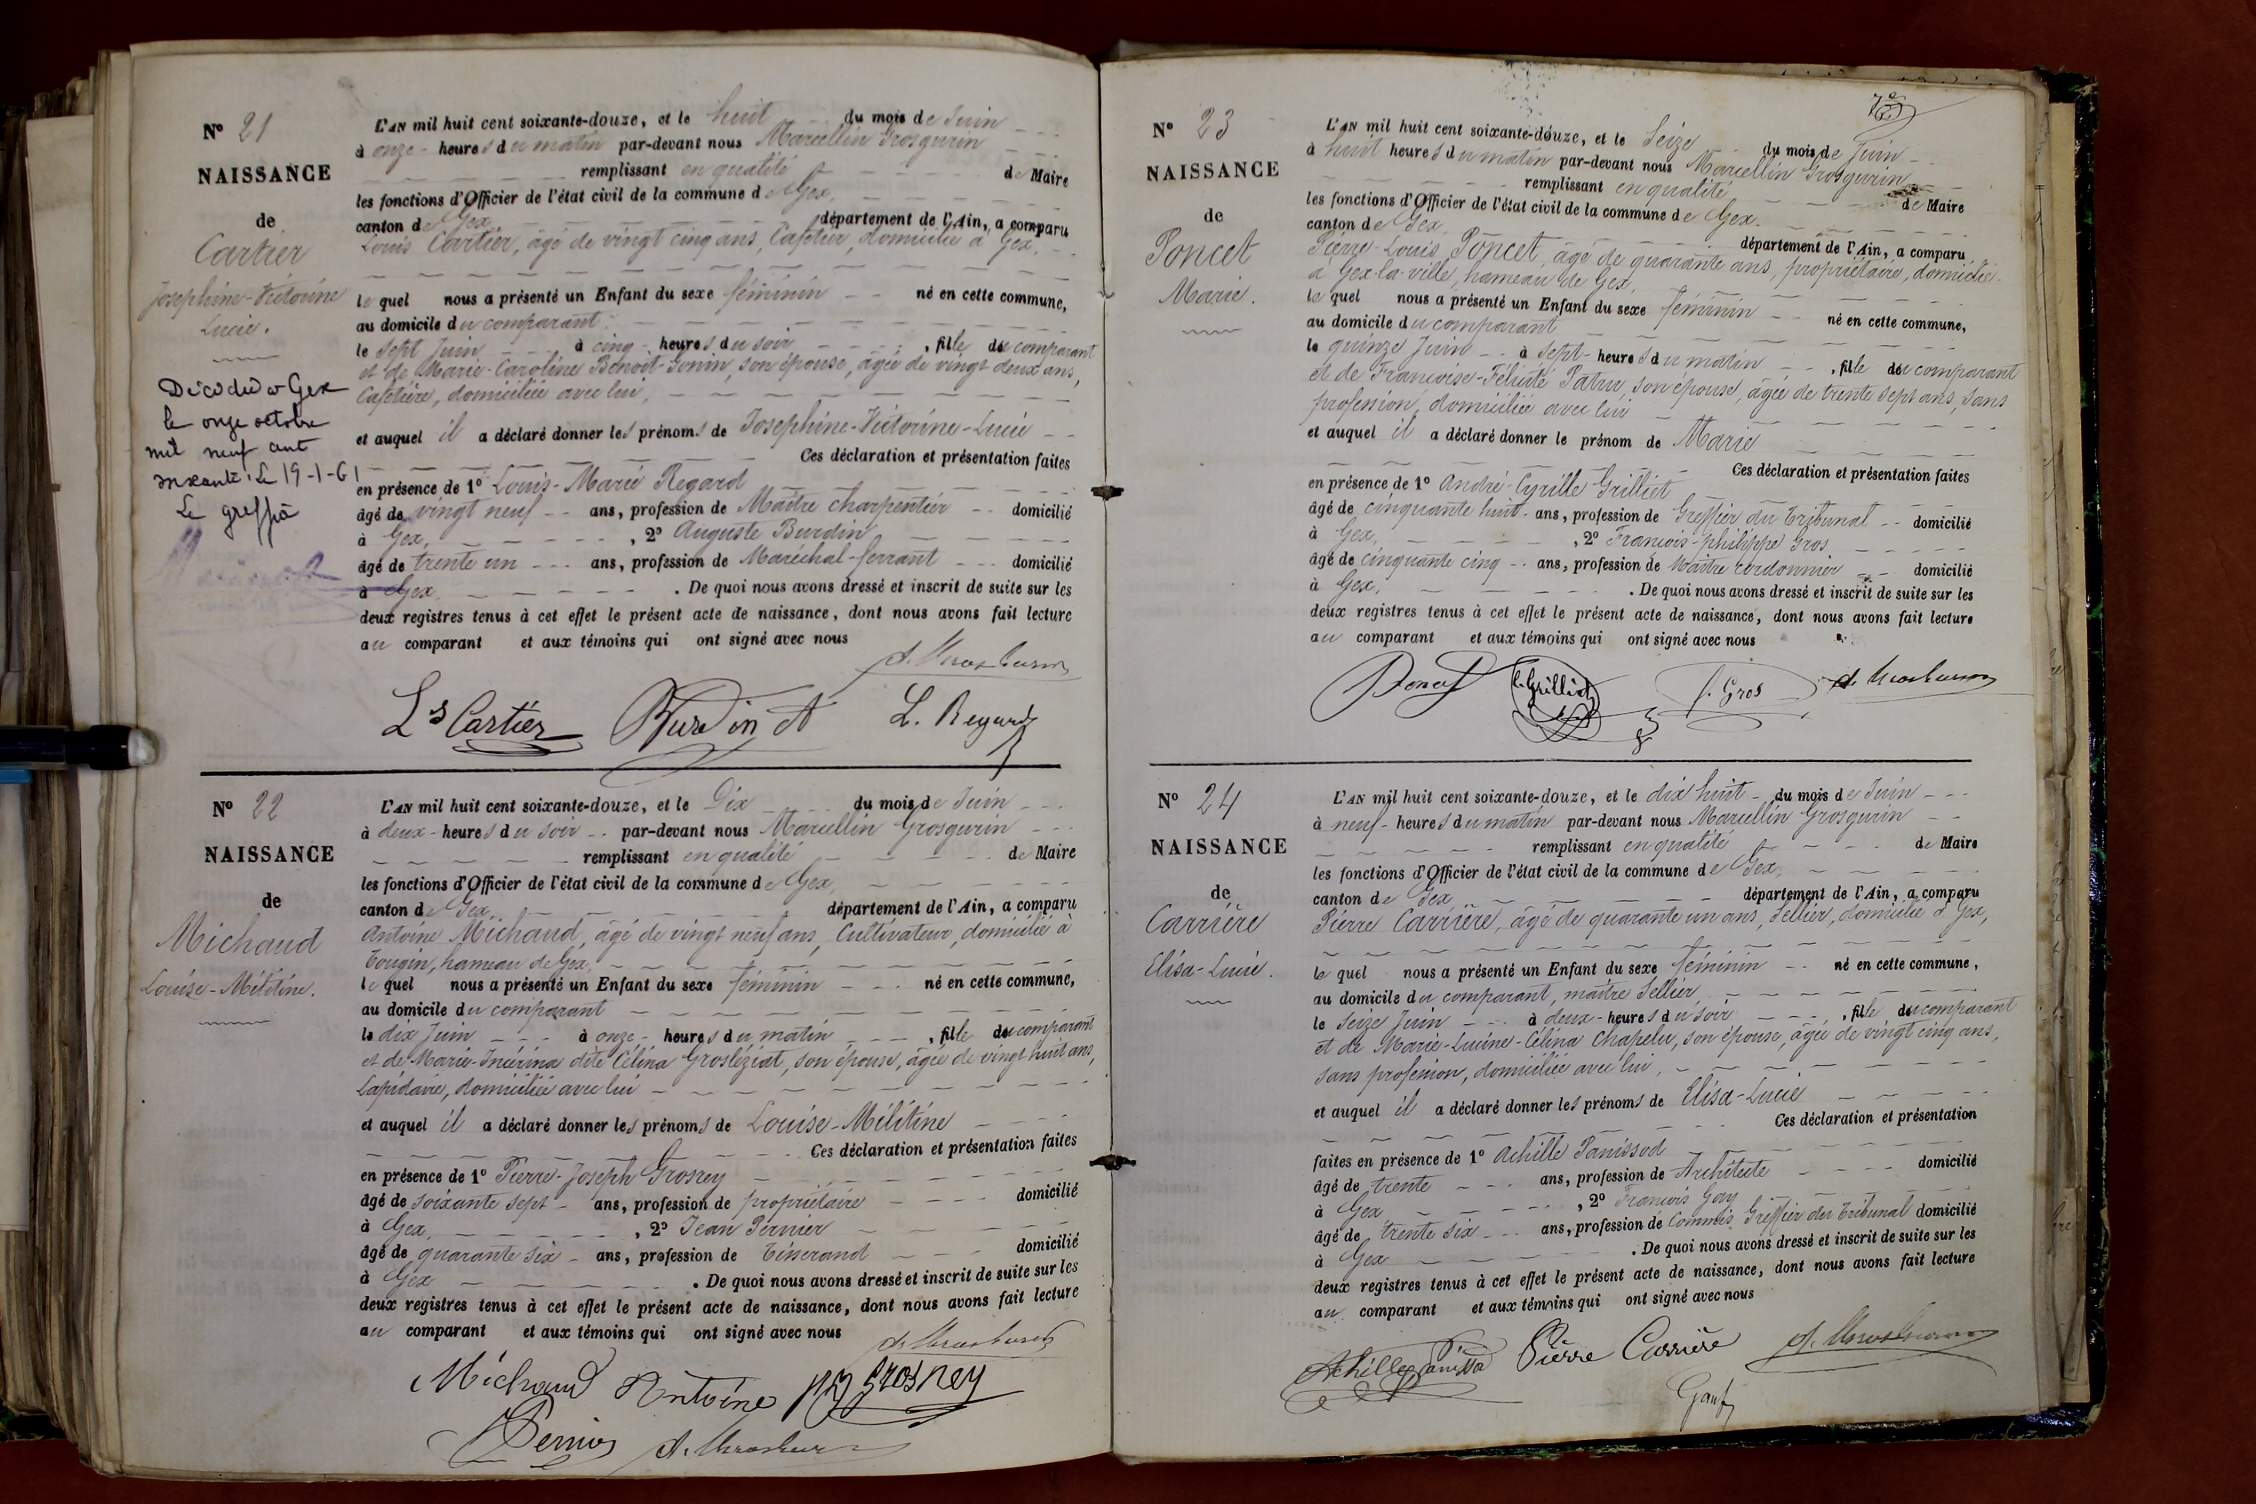 N° 21
NAISSANCE
de
Cartier
Josephine-Victorine
Lucie.
Décédée à Gex
le onze octobre
mil neuf cent
soixante. Le 19-1-61
Le greffier
L'AN mil huit cent soixante-douze, et le huit du mois de Juin
à onze heures du matin par-devant nous Marcellin Grosgurin
remplissant en qualité de Maire
les fonctions d'Officier de l'état civil de la commune de Gex,
canton de Gex département de l'Ain, a comparu
Louis Cartier, âgé de vingt cinq ans, Cafetier, domicilié à Gex,
lequel nous a présenté un Enfant du sexe féminin né en cette commune,
au domicile du comparant
le sept Juin à cinq heures du soir, fille du comparant
et de Marie-Caroline Benoit-Gonin, son épouse, âgée de vingt deux ans,
Cafetière, domiciliée avec lui,
et auquel il a déclaré donner les prénoms de Josephine-Victorine-Lucie
Ces déclaration et présentation faites
en présence de 1° Louis-Marie Regard
âgé de vingt neuf ans, profession de Maître charpentier domicilié
à Gex, 2° Auguste Burdin
âgé de trente un ans, profession de Maréchal-ferrant domicilié
à Gex. De quoi nous avons dressé et inscrit de suite sur les
deux registres tenus à cet effet le présent acte de naissance, dont nous avons fait lecture
au comparant et aux témoins qui ont signé avec nous
Ls Cartier Burdin A L. Regard
N° 22
NAISSANCE
de
Michaud
Louise-Mélitine.
L'AN mil huit cent soixante-douze, et le Dix du mois de Juin
à deux heures du soir par-devant nous Marcellin Grosgurin
remplissant en qualité de Maire
les fonctions d'Officier de l'état civil de la commune de Gex,
canton de Gex, département de l'Ain, a comparu
Antoine Michaud, âgé de vingt neuf ans, Cultivateur, domicilié à
Tougin, hameau de Gex,
lequel nous a présenté un Enfant du sexe féminin né en cette commune,
au domicile du comparant
le dix Juin à onze heures du matin, fille du comparant
et de Marie-Incérina dite Célina Grosléziat, son épouse, âgée de vingt huit ans,
Lapidaire, domiciliée avec lui
et auquel il a déclaré donner les prénoms de Louise-Mélitine
Ces déclaration et présentation faites
en présence de 1° Pierre-Joseph Grosrey
âgé de soixante sept ans, profession de propriétaire domicilié
à Gex, 2° Jean Pernier
âgé de quarante six ans, profession de Tisserand domicilié
à Gex. De quoi nous avons dressé et inscrit de suite sur les
deux registres tenus à cet effet le présent acte de naissance, dont nous avons fait lecture
au comparant et aux témoins qui ont signé avec nous
Michaud Antoine PJ Grosrey
N° 23
NAISSANCE
de
Poncet
Marie.
L'AN mil huit cent soixante-douze, et le Seize du mois de Juin
à huit heures du matin par-devant nous Marcellin Grosgurin
remplissant en qualité de Maire
les fonctions d'Officier de l'état civil de la commune de Gex.
canton de Gex, département de l'Ain, a comparu
Pierre-Louis Poncet, âgé de quarante ans, propriétaire, domicilié
à Gex-la-ville, hameau de Gex,
lequel nous a présenté un Enfant du sexe féminin né en cette commune,
au domicile du comparant
le quinze Juin à sept heures du matin, fille du comparant
et de Françoise-Félicité Patru, son épouse, âgée de trente sept ans, sans
profession, domiciliée avec lui
et auquel il a déclaré donner le prénom de Marie
Ces déclaration et présentation faites
en présence de 1° André-Cyrille Grilliet
âgé de cinquante huit ans, profession de Greffier du Tribunal domicilié
à Gex, 2° François-philippe Gros
âgé de cinquante cinq ans, profession de Maître cordonnier domicilié
à Gex. De quoi nous avons dressé et inscrit de suite sur les
deux registres tenus à cet effet le présent acte de naissance, dont nous avons fait lecture
au comparant et aux témoins qui ont signé avec nous
Poncet C. Grilliet f. Gros
N° 24
NAISSANCE
de
Carrière
Elisa-Lucie.
L'AN mil huit cent soixante-douze, et le dix huit du mois de Juin
à neuf heures du matin par-devant nous Marcellin Grosgurin
remplissant en qualité de Maire
les fonctions d'Officier de l'état civil de la commune de Gex,
canton de Gex département de l'Ain, a comparu
Pierre Carrière, âgé de quarante un ans, Sellier, domicilié à Gex,
lequel nous a présenté un Enfant du sexe féminin né en cette commune,
au domicile du comparant, maître Sellier
le seize Juin à deux heures du soir, fille du comparant
et de Marie-Lucine-Célina Chapelu, son épouse, âgée de vingt cinq ans,
sans profession, domiciliée avec lui,
et auquel il a déclaré donner les prénoms de Elisa-Lucie
Ces déclaration et présentation
faites en présence de 1° Achille Panissod
âgé de trente ans, profession de Architecte domicilié
à Gex, 2° François Gay
âgé de trente six ans, profession de Commis Greffier du Tribunal domicilié
à Gex. De quoi nous avons dressé et inscrit de suite sur les
deux registres tenus à cet effet le présent acte de naissance, dont nous avons fait lecture
au comparant et aux témoins qui ont signé avec nous
Achille Panissod Pierre Carrière